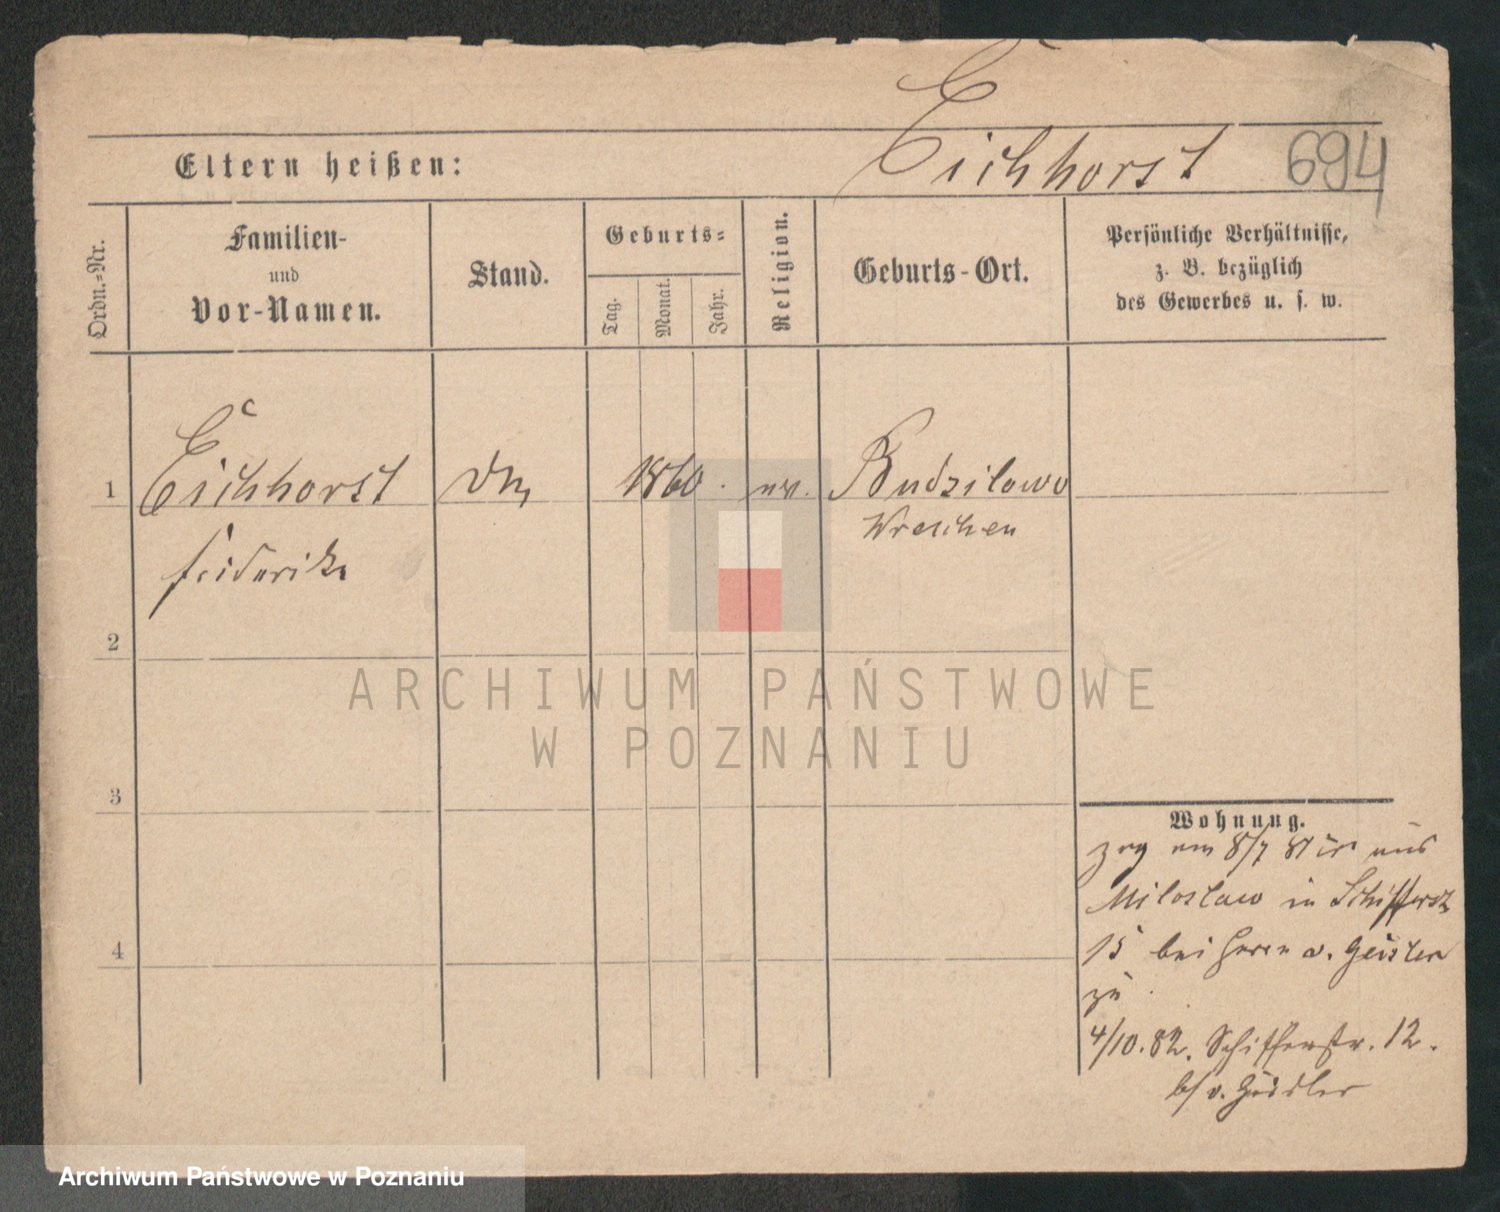 Eichhorst 694
Eltern heißen:
Ordn.-Nr.
Familien-
und
Vor-Namen.
Stand.
Geburts-
Tag.
Monat.
Jahr.
Religion.
Geburts-Ort.
Persönliche Verhältnisse,
z. B. bezüglich
des Gewerbes u. s. w.
1 Eichhorst 1860. ev. Budzilowo
Wreschen
Friderike
2
3
4
Wohnung.
zog am 8/7 81 aus
Miloslaw in Schifferstr
15 bei Herrn v. Geisler
zu
4/10. 82. Schifferstr. 12.
b/ v. Geisler
ARCHIWUM PAŃSTWOWE
W POZNANIU
Archiwum Państwowe w Poznaniu